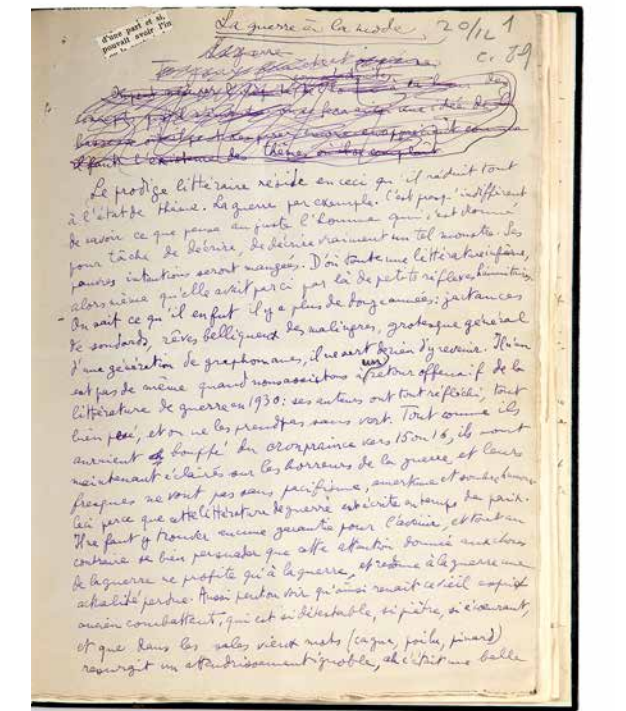 d'une part et si,
pouvait avoir l'in
La guerre à la mode. 20/12 1
c. 89
La guerre
l'existence des thèmes
Le prodige littéraire réside en ceci qu'il réduit tout
à l'état de thème. La guerre par exemple. C'est presqu'indifférent
de savoir ce que pense au juste l'homme qui s'est donné
pour tâche de décrire, de décrire vraiment un tel monstre. Ses
pauvres intentions seront mangées. D'où toute une littérature infâme,
alors même qu'elle avait par ci par là de petits réflexes humanitaires.
On sait ce qu'il en fut il y a plus de douze années : jactances
de soudards, rêves belliqueux des malingres, grotesque général
d'une génération de graphomanes, il ne sert de rien d'y revenir. Il n'en
est pas de même quand nous assistons à un retour offensif de la
littérature de guerre en 1930 : ses auteurs ont tout réfléchi, tout
bien pesé, et on ne les prend pas sans vert. Tout comme ils
auraient bouffé du cronprince vers 15 ou 16, ils sont
maintenant éclairés sur les horreurs de la guerre, et leurs
fresques ne vont pas sans pacifisme, amertume et sombre
Ceci parce que cette littérature de guerre est écrite en temps de paix.
Il ne faut y trouver aucune garantie pour l'avenir, et tout au
contraire se bien persuader que cette attention donnée aux choses
de la guerre ne profite qu'à la guerre, et redonne à la guerre une
actualité perdue. Aussi peut on voir qu'ainsi renaît ce vieil esprit
ancien combattant, qui est si détestable, si piètre, si écœurant,
et que dans les sales vieux mots (cagna, poilu, pinard)
resurgit un attendrissement ignoble, ah c'était une belle